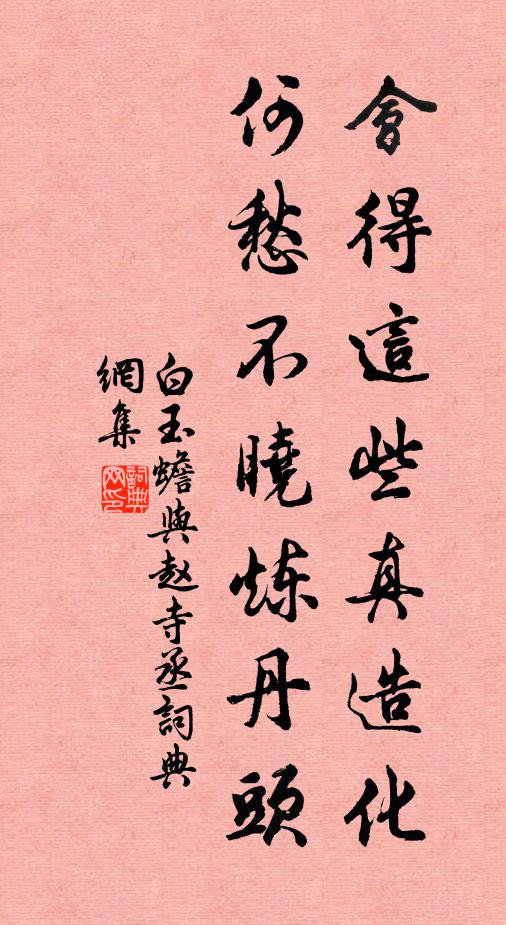 會得這些真造化
何愁不曉炼丹頭
白玉蟾與赵寺丞詞典
網集
詞典
网印